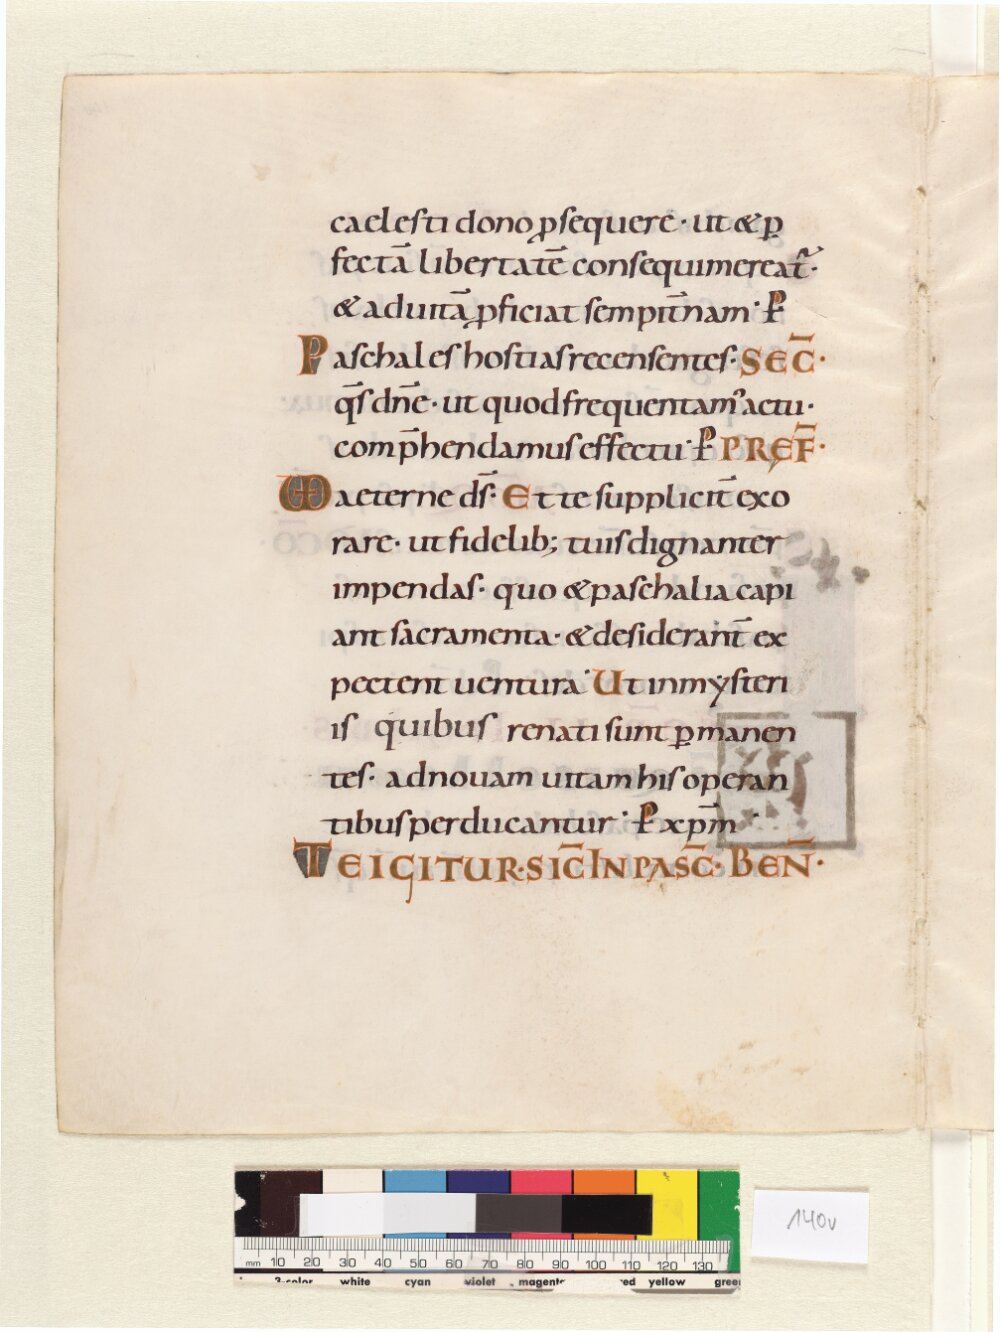 caelesti dono ꝓsequere· ut & ꝑ
fectā libertatē consequimereat̃·
& aduitā ꝓficiat sempit̄nam· ꝑ
Paschales hostias recensentes· SEC̄·
q̄s dn̄e· ut quod frequentam᾽ actu·
comp̄hendamus effectu· ꝑ PREF̄·
VD aeterne ds̄· Et te suppliciт̄ exo
rare· ut fidelib; tuis dignanter
impendas· quo & paschalia capi
ant sacramenta· & desiderant̄ ex
pectent uentura· Ut in mẏsteri
is quibus renati sunt ꝑmanen
tes· ad nouam uitam his operan
tibus perducantur· ꝑ xp̄m·
TE IGITUR· SIC̄ IN PASC̄· BEN̄·
mm 10 20 30 40 50 60 70 80 90 100 110 120 130
3-color white cyan violet magenta red yellow green
140v